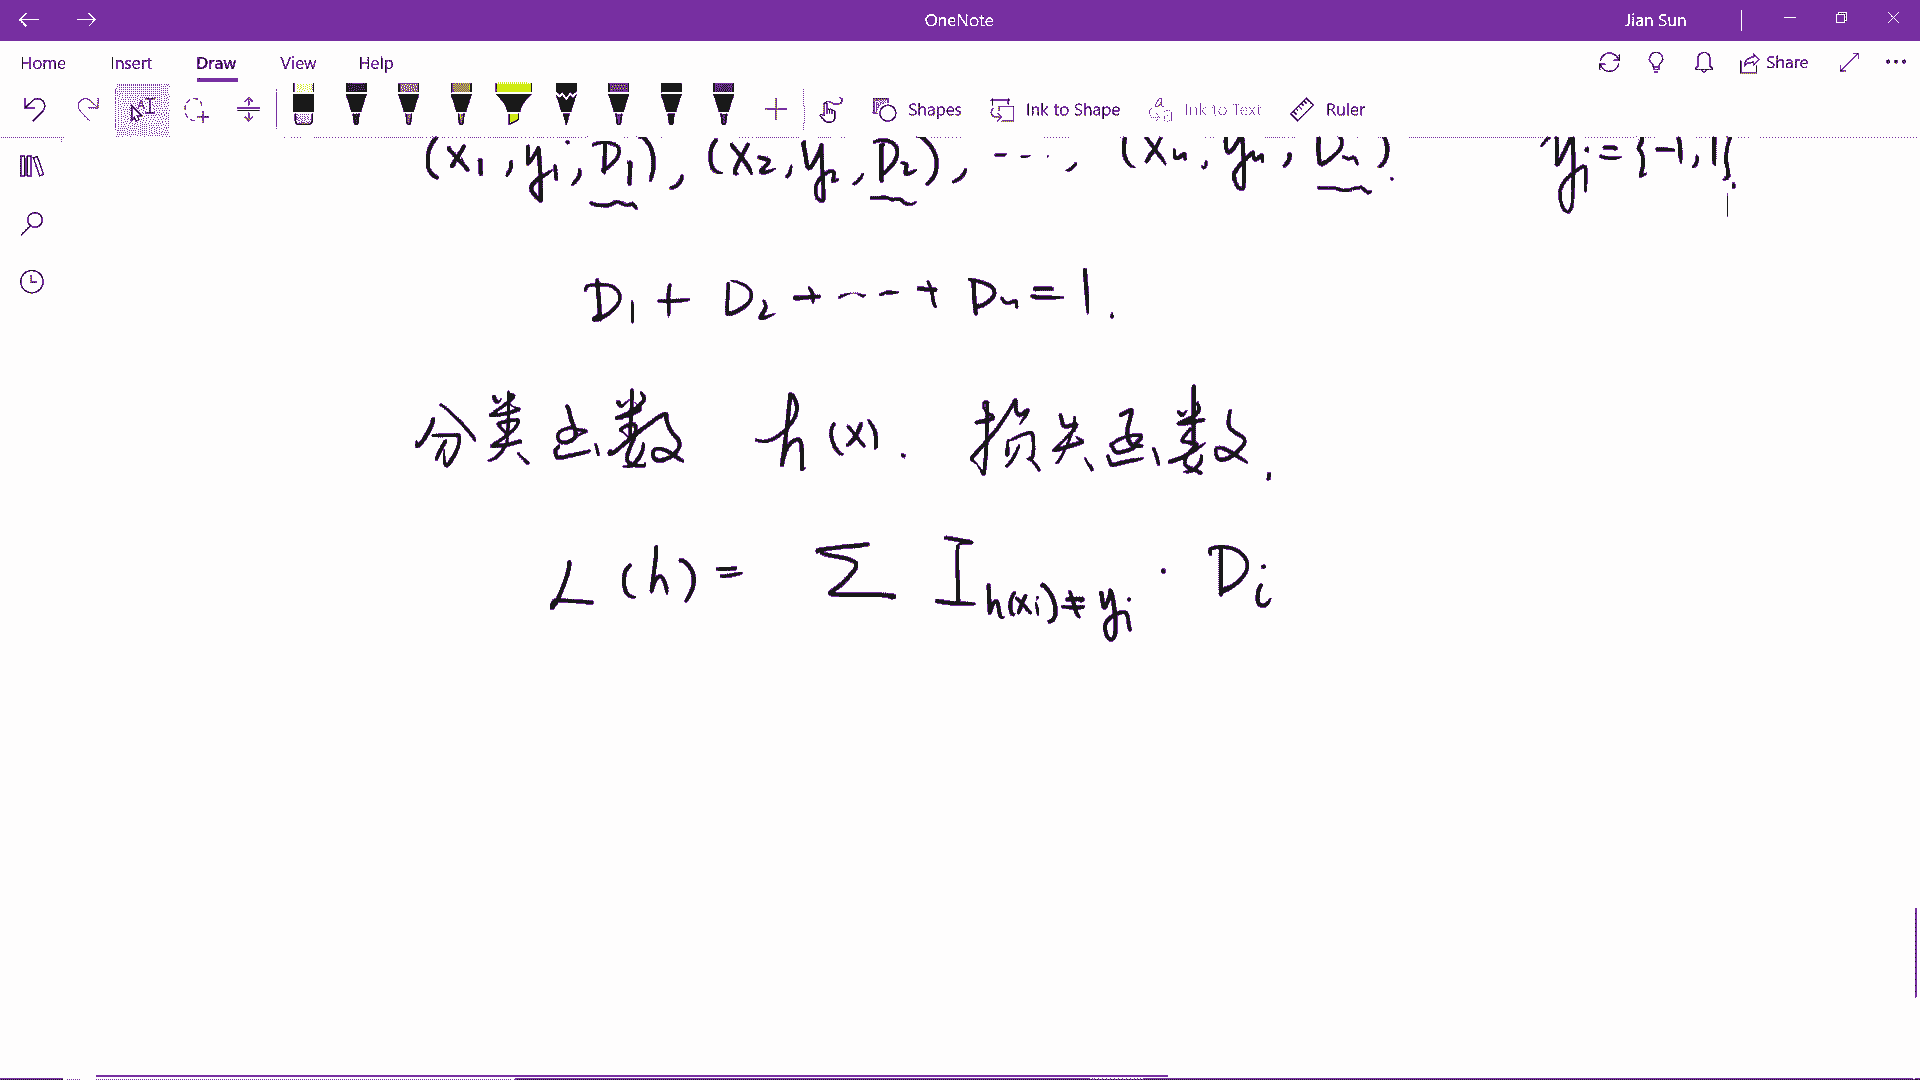 OneNote
Jian Sun
Home Insert Draw View Help
Share
Shapes Ink to Shape Ink to Text Ruler
(x₁, yᵢ, D₁), (x₂, y₂, D₂), ---, (xₙ, yₙ, Dₙ). yᵢ = {-1, 1}.
D₁ + D₂ + --- + Dₙ = 1.
分类函数 h(x). 损失函数.
L(h) = ∑ I_{h(xᵢ)≠yᵢ} · Dᵢ